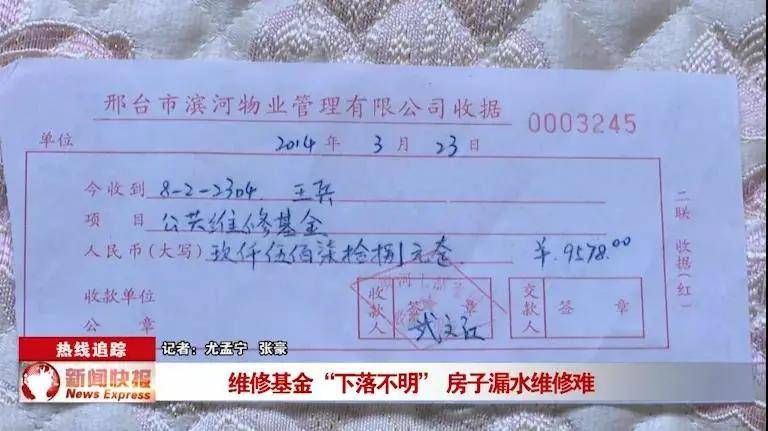 邢台市滨河物业管理有限公司收据
0003245
单位
2014 年 3 月 23 日
今收到 8-2-2304. 王兵
项目 公共维修基金
人民币(大写) 玖仟伍佰柒拾捌元 ¥.9578.00
收款单位
公章
收款人
签章
武文江
交款人
签章
二联 收据(红)
热线追踪
记者:尤孟宁 张豪
新闻快报
News Express
维修基金“下落不明” 房子漏水维修难